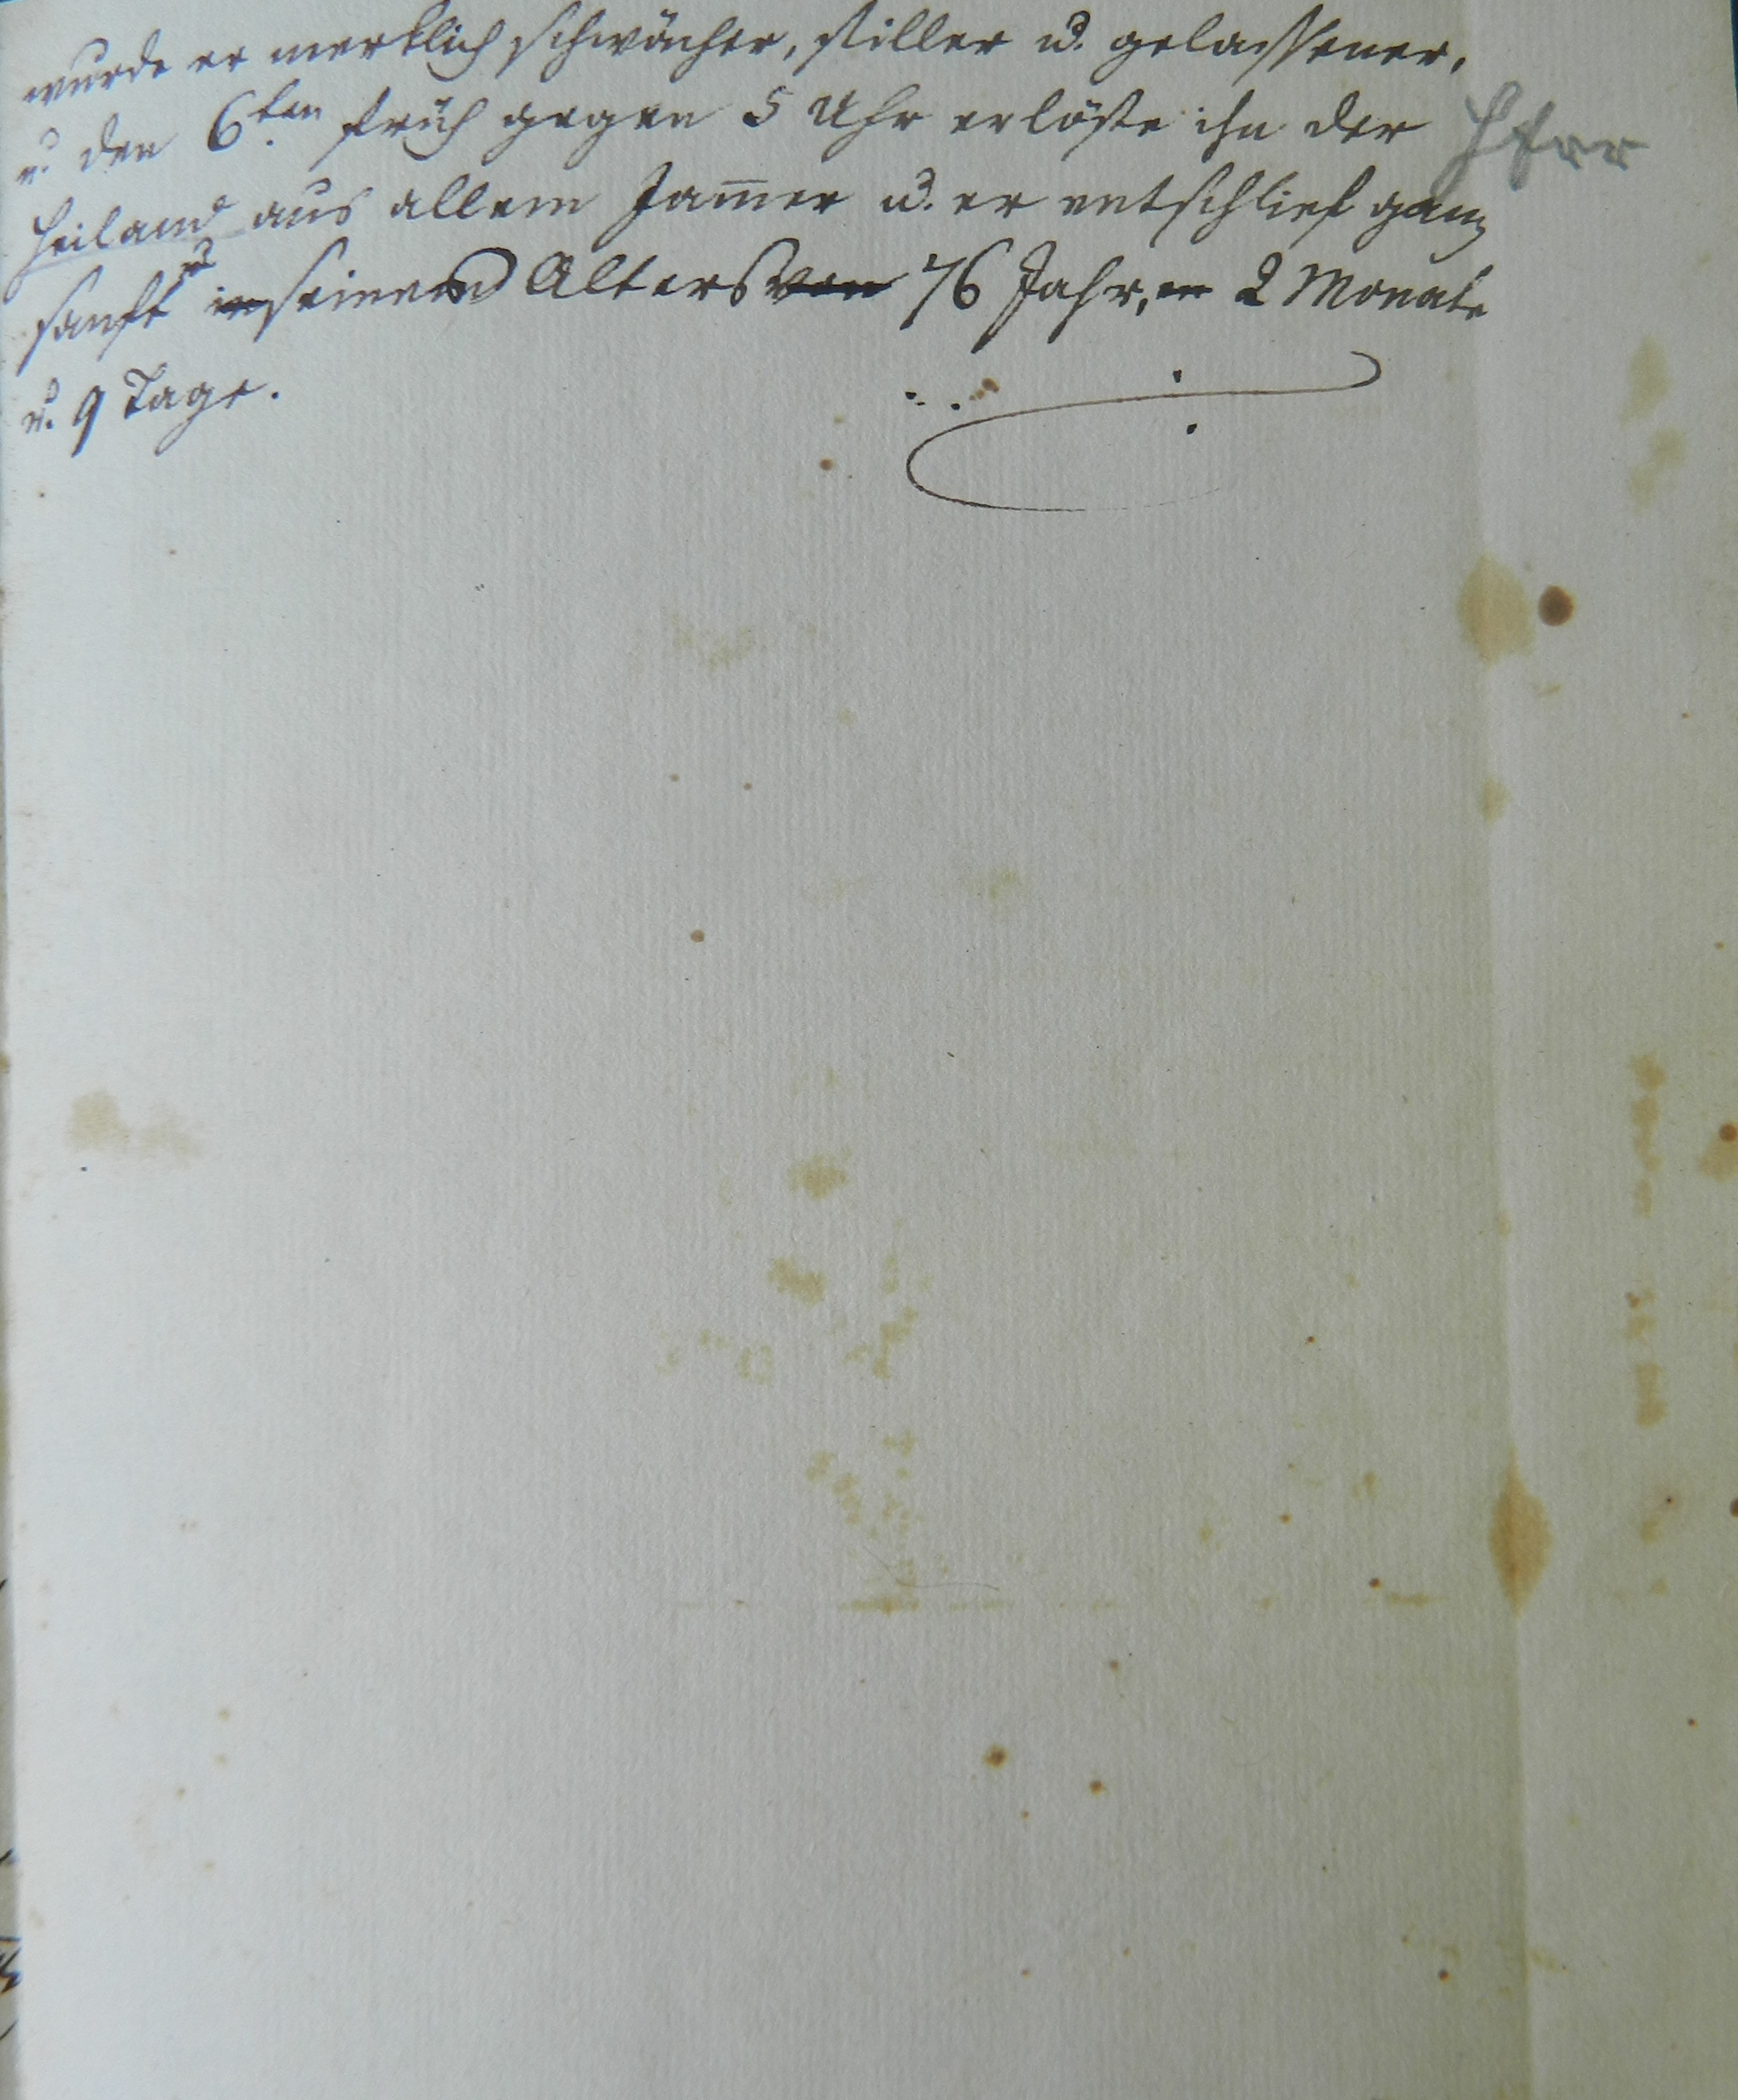 wurde er merklich schwächer, stiller u. gelassener,
u. den 6ten. früh gegen 5 Uhr erlöste ihn der Herr
Heiland aus allem Jam̅er u. er entschlief ganz
sanft in seinem Alters von 76 Jahr, en 2 Monate
u. 9 Tage.